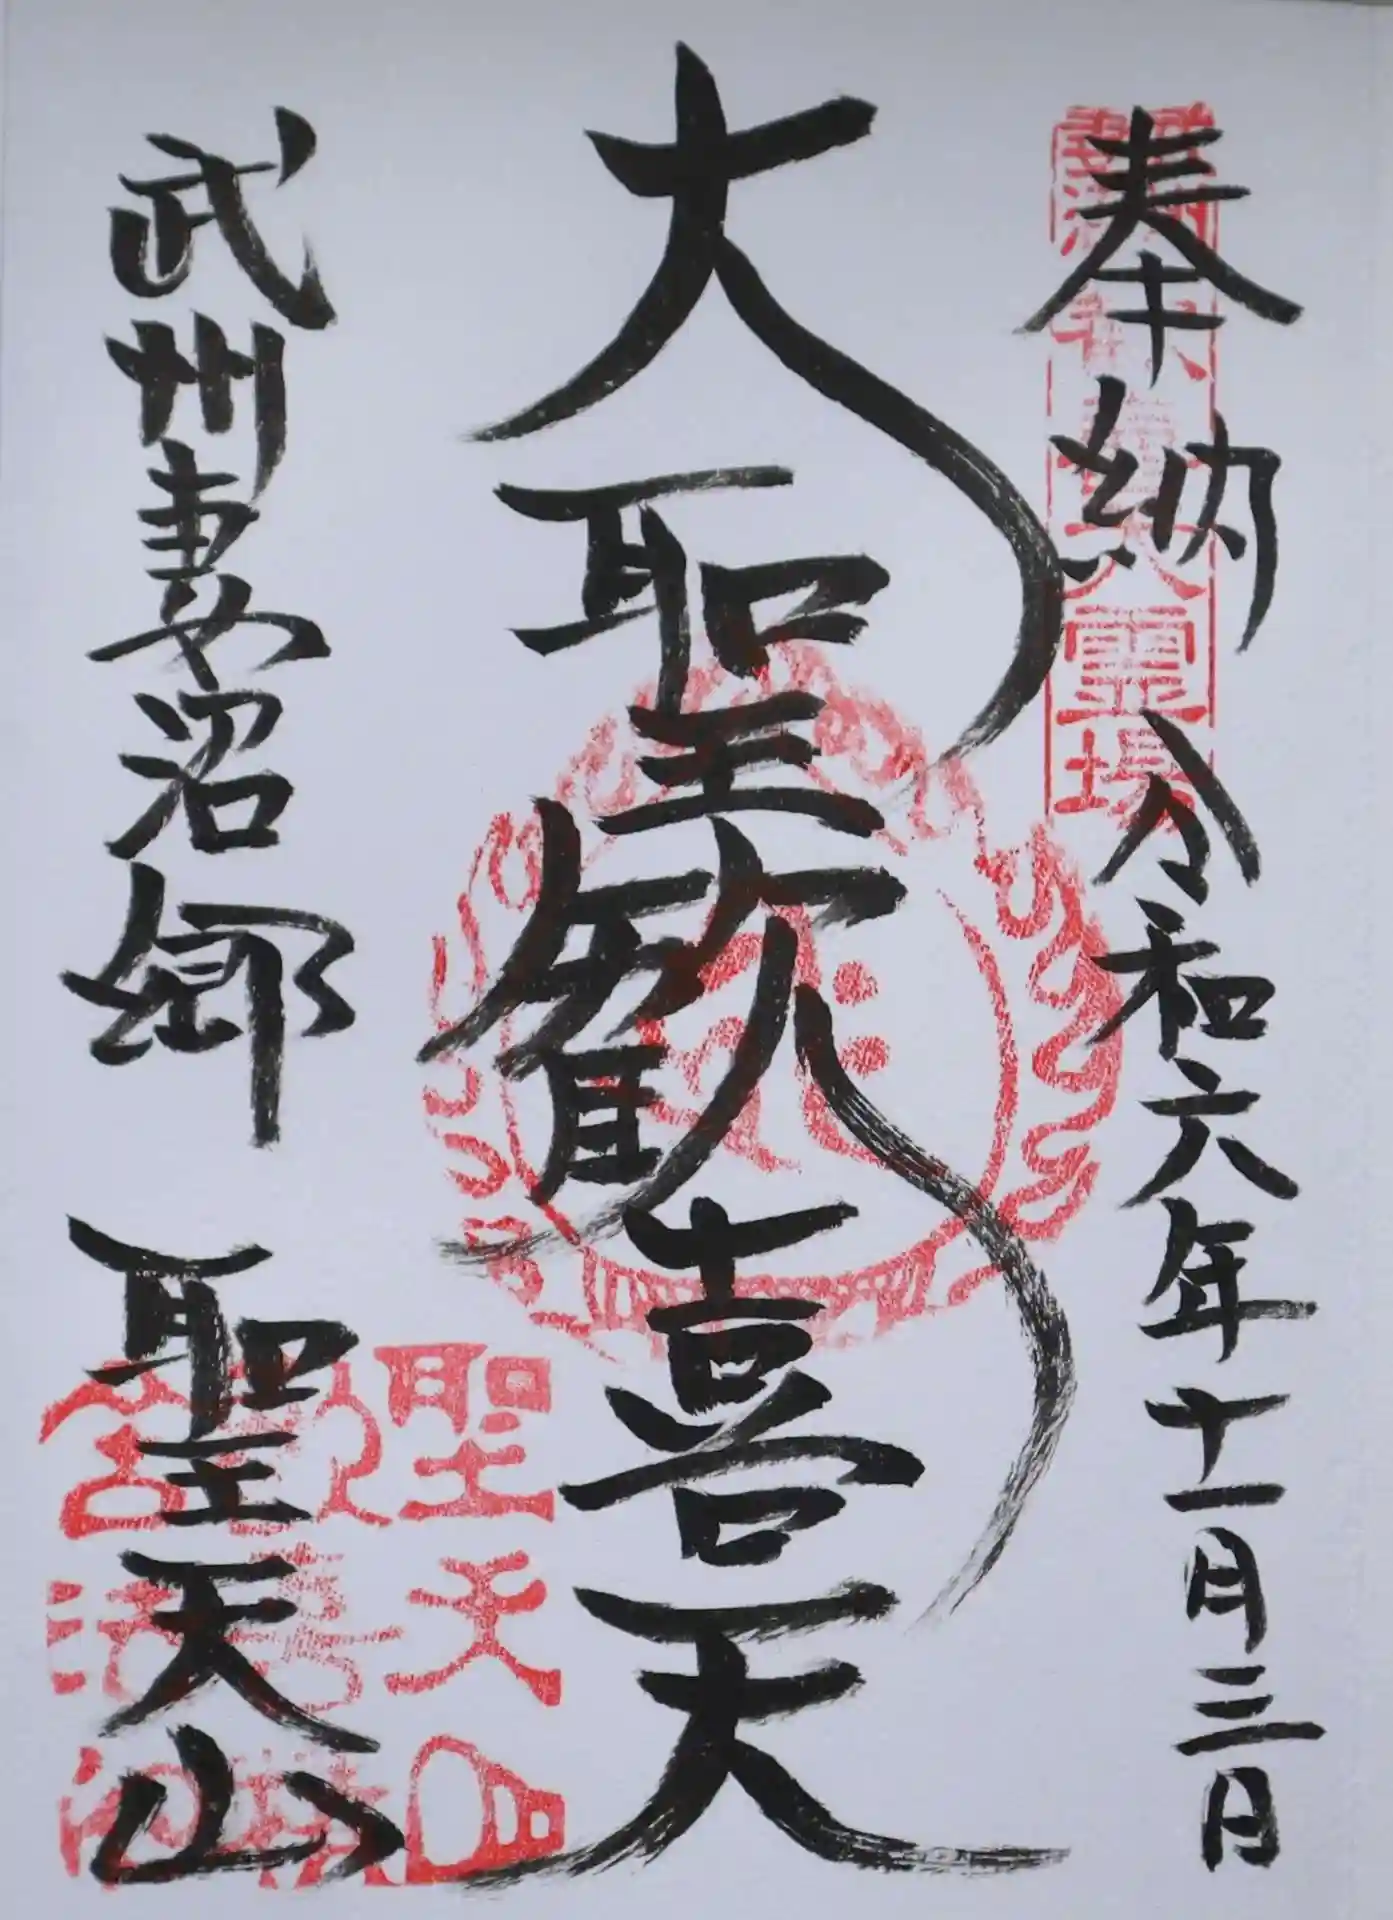 奉納 令和六年十一月三日
大聖歓喜天
武州妻沼郷 聖天山
霊場
聖天山